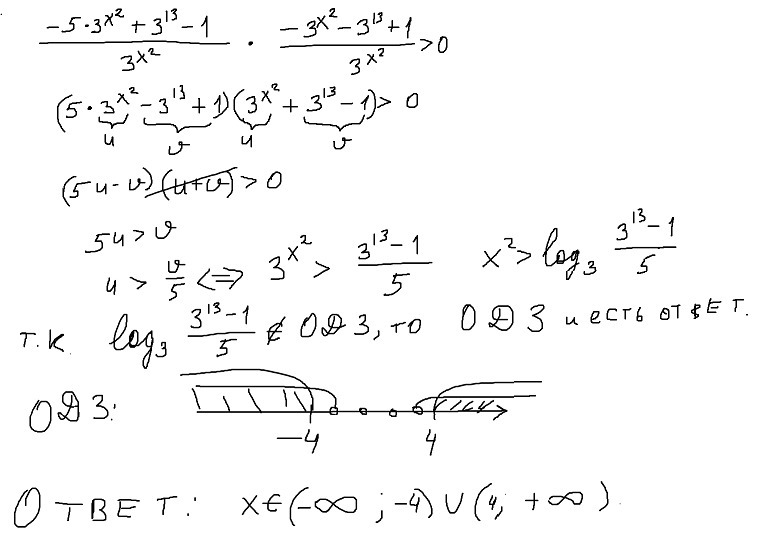 (-5·3^(x²) + 3^13 - 1)/3^(x²) · (-3^(x²) - 3^13 + 1)/3^(x²) > 0
(5·3^(x²) - 3^13 + 1)(3^(x²) + 3^13 - 1) > 0
u v u v
(5u - v)(u+v) > 0
5u > v
u > v/5 <=> 3^(x²) > (3^13 - 1)/5 x² > log₃ (3^13 - 1)/5
т.к. log₃ (3^13 - 1)/5 ∉ ОДЗ, то ОДЗ и есть ответ.
ОДЗ:
-4 4
Ответ: x∈(-∞; -4)∪(4; +∞).